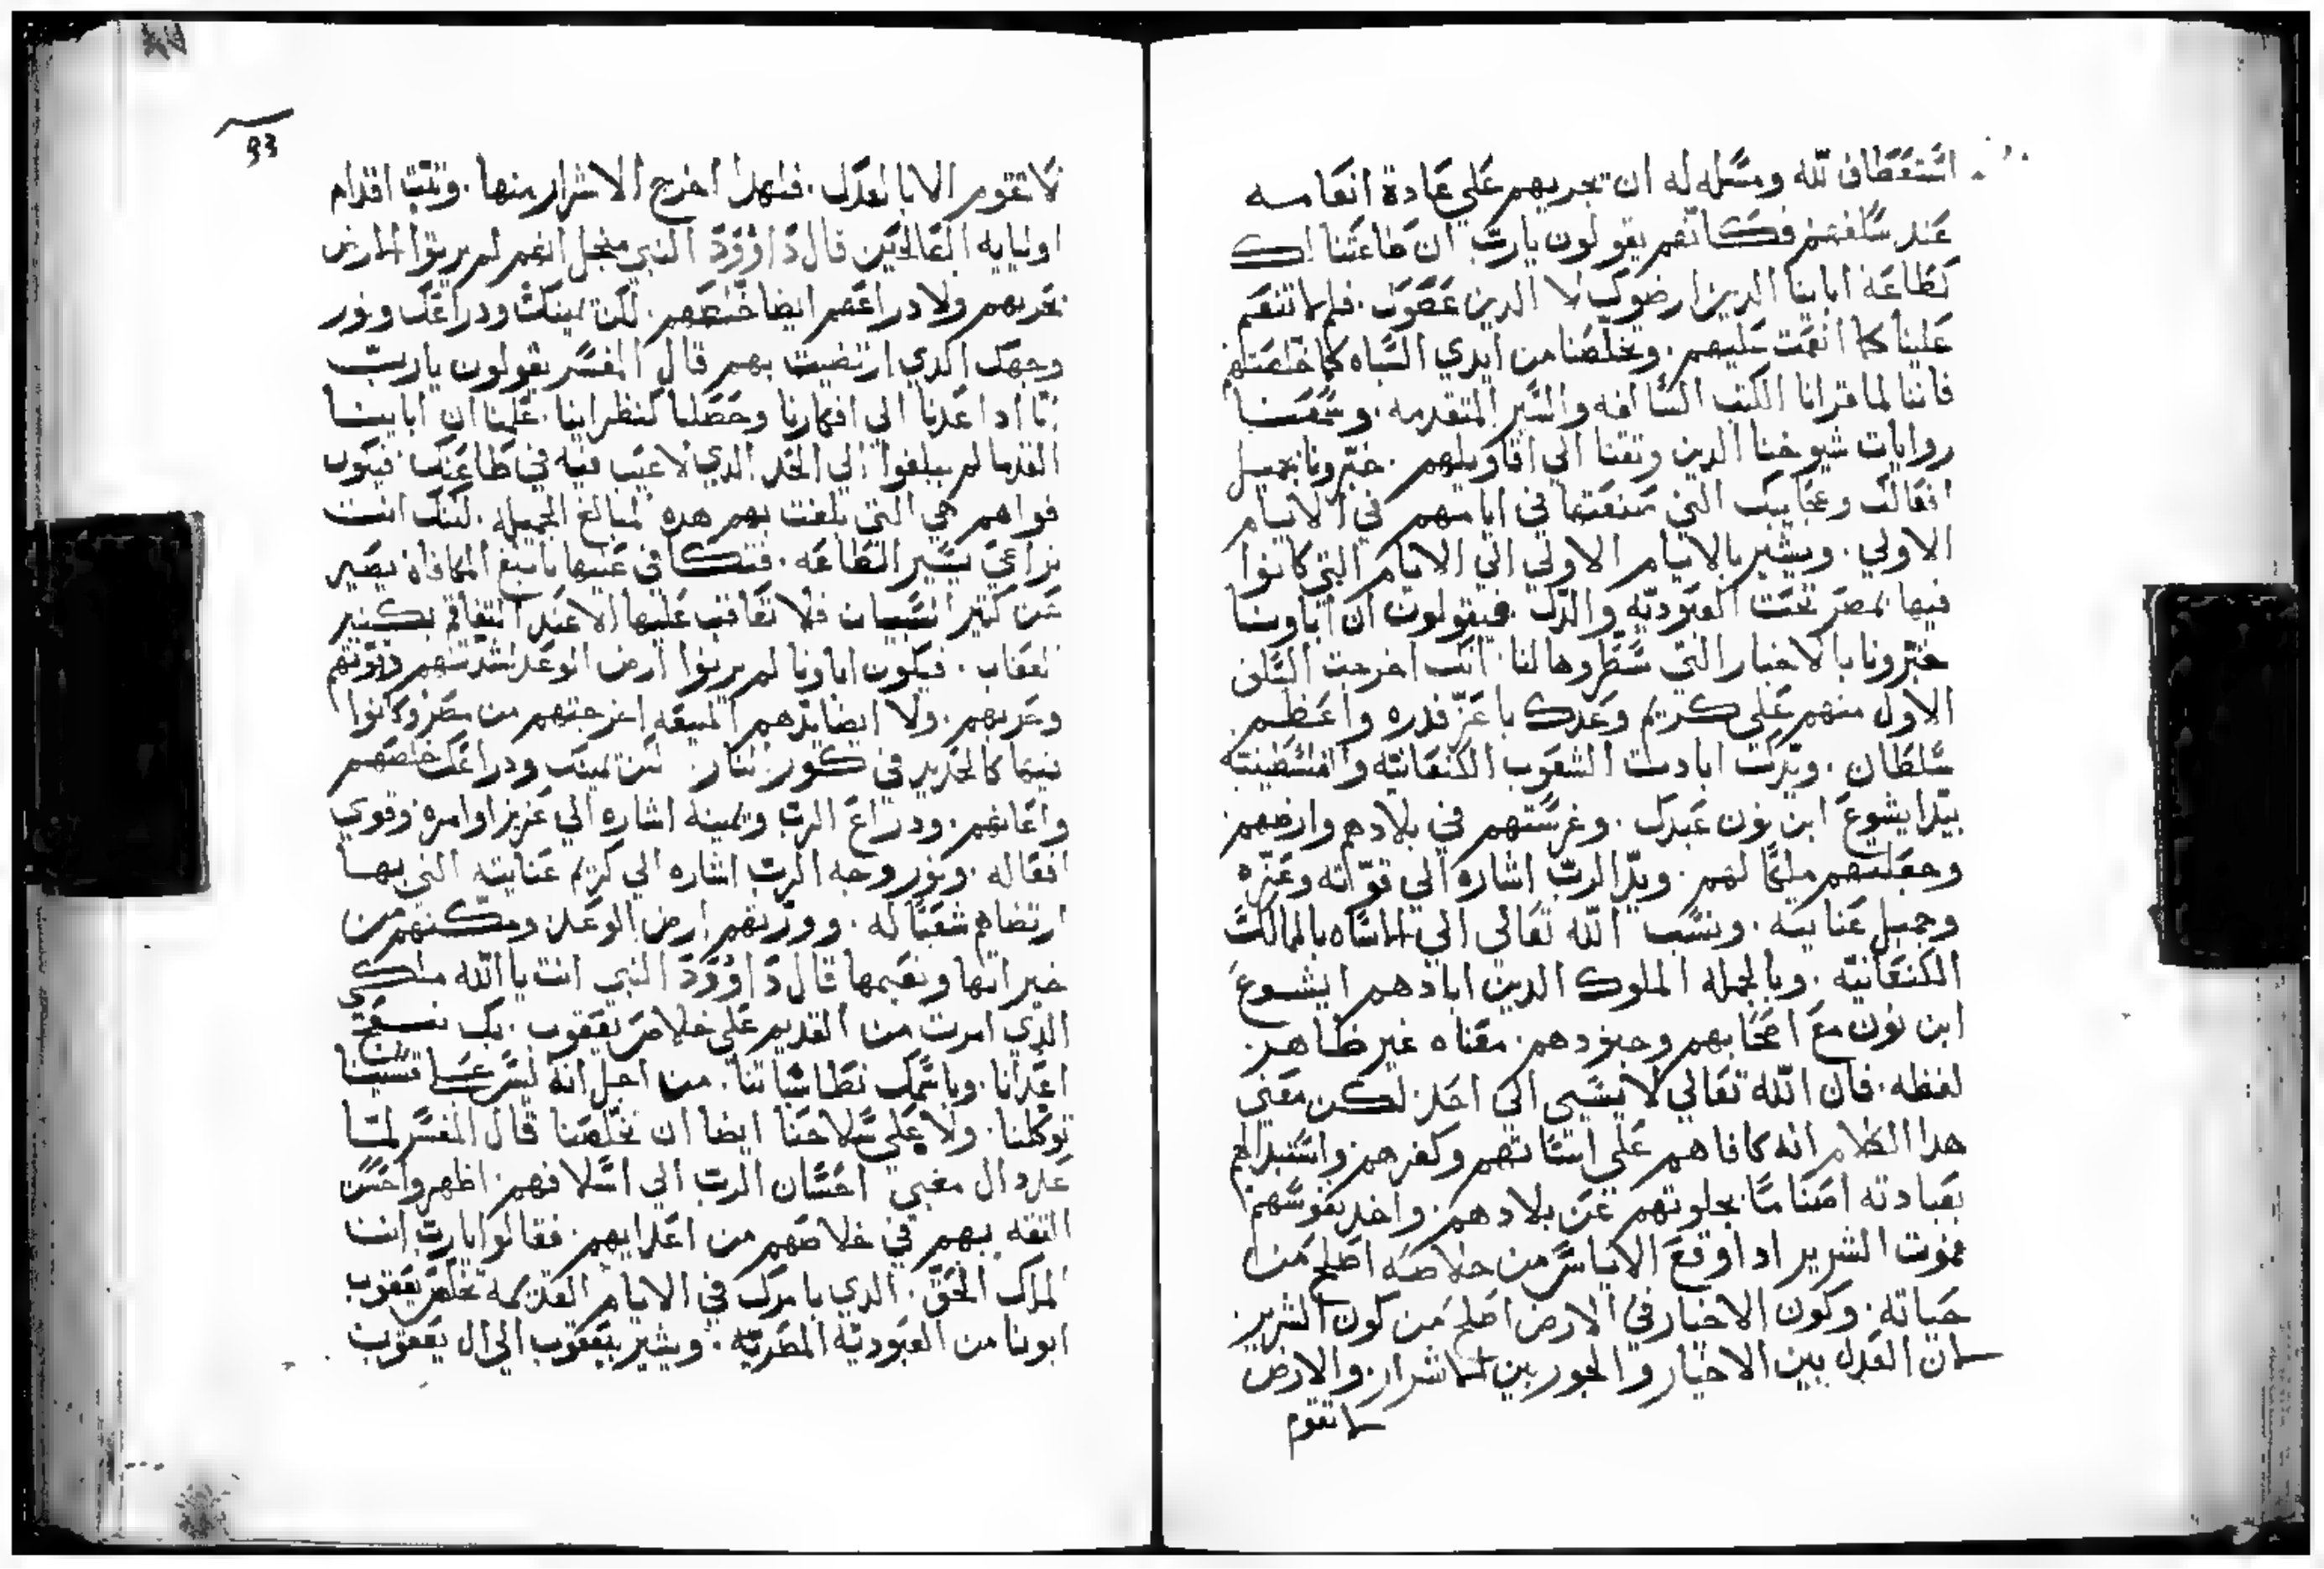 استعطاف لله ومسله له ان تجريهم علي عادة انعامه
عند سلفهم فكانهم يقولون يارب ان طاعتنا لك
كطاعة اباينا الدين ارضوك لا الدين عصوك. فلم لا تنعم
علينا كما انعمت عليهم. وتخلصنا من ايدي السباه كما خلصتهم
فاننا لما قرانا الكتب السالفه والسير المتقدمه. وسمعنا
روايات شيوخنا الدين وتقنا الي اقاويلهم. خبرونا بجميل
افعالك وعجايبك التي صنعتها في ايامهم في الايام
الاولي. ويشير بالايام الاولي الي الايام التي كانوا
فيها بمصر تحت العبوديه والدل. فيقولون ان اباونا
خبرونا بالاخبار التي سطروها لنا. انك اخرجت
الاول منهم علي كريم وعدك باعز قدره واعظم
سلطان. وبيدك ابادت الشعوب الكنعانيه والفلسطينيه
بيد ايشوع ابن نون عبدك. وغرستهم في بلادهم وارضهم
وجعلتهم ملكا لهم. ويد الرب اشاره الي قوته وعزه
وجميل عنايته. ونسب الله تعالي الي الاساه بالممالك
الكنعانيه. وبالجمله الملوك الدين ابادهم ايشوع
ابن نون مع اصحابهم وجنودهم. معناه غير ظاهر
لفظه. فان الله تعالي لا يسي الي احد. لكن معني
هدا الكلام انه كافاهم علي اساتهم وكفرهم واستبدالهم
بعبادته اصناما بجلوتهم عن بلادهم. واخد نفوسهم
فموت الشرير ادا وقع الاياس من خلاصه اصلح من
حياته. وكون الاخيار في الارض اصلح من كون الشرير
لان العدل بين الاخيار والجور بين الاشرار. والارض
لا تقوم
93
لا تقوم الا بالعدل. فلهدا اخرج الاشرار منها. وتبت اقدام
اوليايه الصالحين قال داوود النبي من اجل انهم لم يرتوا الارض
بحربهم ولا دراعهم ايضا خلصهم. لكن يمينك ودراعك ونور
وجهك الدي ارتضيت بهم قال المفسر يقولون يارب
انا ادا عدنا الي افكارنا وحصلنا كنظراينا. علمنا ان اباينا
القدما لم يبلغوا الي الحد الدي لا عيب فيه في طاعتك. فيكون
قواهم هي التي بلغت بهم هده المبالغ الجميله. لكنك انت
تراعي يسير الطاعه. فتكافي عنها باسبغ المكافاه
عن كتير السيات فلا تعاقب عليها الا عند التفاقم بكتير
العقاب. فيكون اباونا لم يرتوا ارض الوعد بشدتهم وقوتهم
وحربهم. ولا ايضا يدهم المنيعه اخرجتهم من مصر وكانوا
فيها كالحديد في كور النار. لكن يمينك ودراعك خلصهم
واعانهم. ودراع الرب ويمينه اشاره الي عزيز اوامره وقوي
افعاله. ونور وجه الرب اشاره الي كريم عنايته التي بها
ارتضاهم شعبا له. وورتهم ارض الوعد. ومكنهم من
خيراتها ونعيمها قال داوود النبي انت يا الله ملكي
الدي امرت من القديم علي خلاص يعقوب. بك
اعدانا. وباسمك نطا شناتنا. من اجل انه ليس علي قسينا
توكلنا. ولا علي سلاحنا ايضا ان تخلصنا قال المفسر لما
عدد ال مغني احسان الرب الي اسلافهم. اظهروا حسن
التقه بهم في خلاصهم من اعدايهم. فقالوا يارب انت
الملك الحق. الدي بامرك في الايام القديمه تخلص يعقوب
ابونا من العبوديه المصريه. ويشير بيعقوب الي ال يعقوب